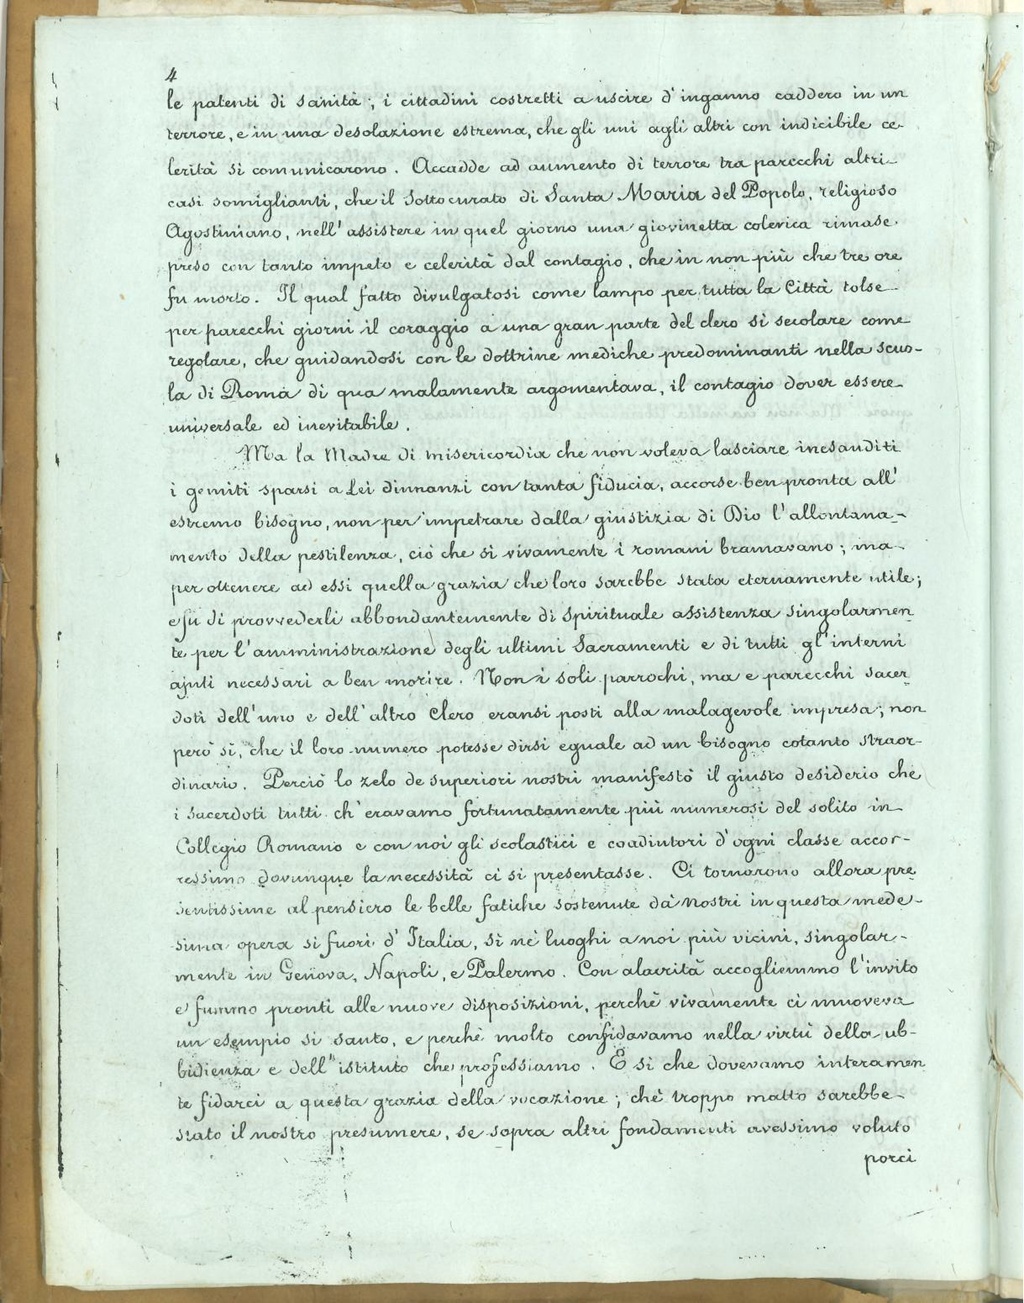 4
le patenti di sanità; i cittadini costretti a uscire d'inganno caddero in un
terrore, e in una desolazione estrema, che gli uni agli altri con indicibile ce-
lerità si comunicarono. Accadde ad aumento di terrore tra parecchi altri
casi somiglianti, che il Sottocurato di Santa Maria del Popolo, religioso
Agostiniano, nell'assistere in quel giorno una giovinetta colerica rimase
preso con tanto impeto e celerità dal contagio, che in non più che tre ore
fu morto. Il qual fatto divulgatosi come lampo per tutta la Città tolse
per parecchi giorni il coraggio a una gran parte del clero sì secolare come
regolare, che guidandosi con le dottrine mediche predominanti nella scuo-
la di Roma di qua malamente argomentava, il contagio dover essere
universale ed inevitabile.
Ma la Madre di misericordia che non voleva lasciare inesauditi
i gemiti sparsi a Lei dinnanzi con tanta fiducia, accorse ben pronta all'
estremo bisogno, non per impetrare dalla giustizia di Dio l'allontana-
mento della pestilenza, ciò che sì vivamente i romani bramavano; ma
per ottenere ad essi quella grazia che loro sarebbe stata eternamente utile;
e fu di provvederli abbondantemente di spirituale assistenza singolarmen
te per l'amministrazione degli ultimi Sacramenti e di tutti gl'interni
ajuti necessari a ben morire. Non i soli parrochi, ma e parecchi sacer
doti dell'uno e dell'altro Clero eransi posti alla malagevole impresa; non
però sì, che il loro numero potesse dirsi eguale ad un bisogno cotanto straor-
dinario. Perciò lo zelo de superiori nostri manifestò il giusto desiderio che
i sacerdoti tutti ch'eravamo fortunatamente più numerosi del solito in
Collegio Romano e con noi gli scolastici e coadiutori d'ogni classe accor-
ressimo dovunque la necessità ci si presentasse. Ci tornorono allora pre
sentissime al pensiero le belle fatiche sostenute dà nostri in questa mede-
sima opera sì fuori d'Italia, sì nè luoghi a noi più vicini, singolar-
mente in Genova, Napoli, e Palermo. Con alacrità accogliemmo l'invito
e fummo pronti alle nuove disposizioni, perchè vivamente ci muoveva
un esempio sì santo, e perchè molto confidavamo nella virtù della ub-
bidienza e dell'istituto che professiamo. E sì che dovevamo interamen
te fidarci a questa grazia della vocazione; chè troppo matto sarebbe
stato il nostro presumere, se sopra altri fondamenti avessimo voluto
porci